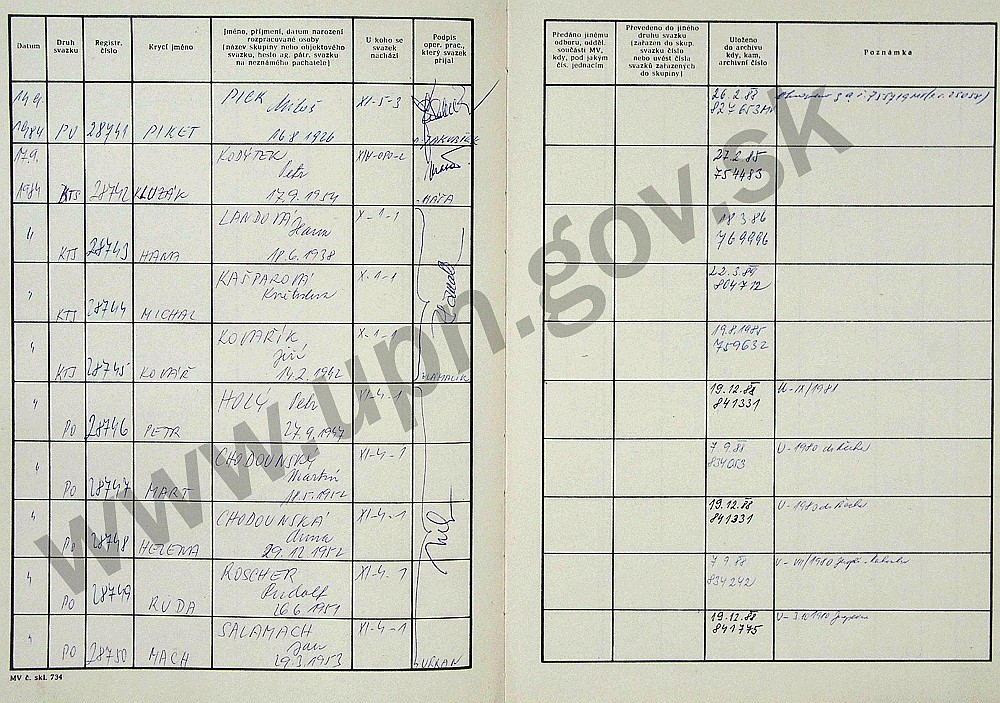 Datum
Druh
svazku
Registr.
číslo
Krycí jméno
Jméno, příjmení, datum narození
rozpracované osoby
(název skupiny nebo objektového
svazku, heslo ag. pátr. svazku
na neznámého pachatele)
U koho se
svazek
nachází
Podpis
oper. prac.,
který svazek
přijal
Předáno jinému
odboru, odděl.
součásti MV,
kdy, pod jakým
čís. jednacím
Převedeno do jiného
druhu svazku
(zařazen do skup.
svazku číslo
nebo uvést čísla
svazků zařazených
do skupiny)
Uloženo
do archivu
kdy, kam,
archivní číslo
Poznámka
14.9.
1984 PO 28741 PIKET
PICK
Miloš
16.8.1926
XI-5-3
26.2.88
827653
17.9.
1984 KTS 28742 KLUZÁK
KODÝTEK
Petr
17.9.1954
MÁŤA
27.2.85
754483
" KTS 28743 HANA
LANDOVÁ
Hana
18.6.1938
X-1-1
18.3.86
769996
" KTS 28744 MICHAL
KAŠPAROVÁ
Květoslava
X-1-1
804712
" KTS 28745 KOVÁŘ
KOVAŘÍK
Jiří
14.2.1942
X-1-1
19.8.1985
759632
" PO 28746 PETR
HOLÝ Petr
27.9.1947
XI-4-1
19.12.88
841331
U-IX/1981
" PO 28747 MART
CHODOUNSKÝ
Martin
18.5.1952
XI-4-1
7.9.88
834053
U-1980 do Řecka
" PO 28748 HELENA
CHODOUNSKÁ
Anna
29.12.1952
XI-4-1
19.12.88
841331
U-1980 do Řecka
" PO 28749 RUDA
ROSCHER
Rudolf
26.6.1951
XI-4-1
7.9.88
834242
" PO 28750 MACH
SALAMACH
Jan
29.3.1953
XI-4-1
URBAN
19.12.88
841775
MV č. skl. 734
www.upn.gov.sk